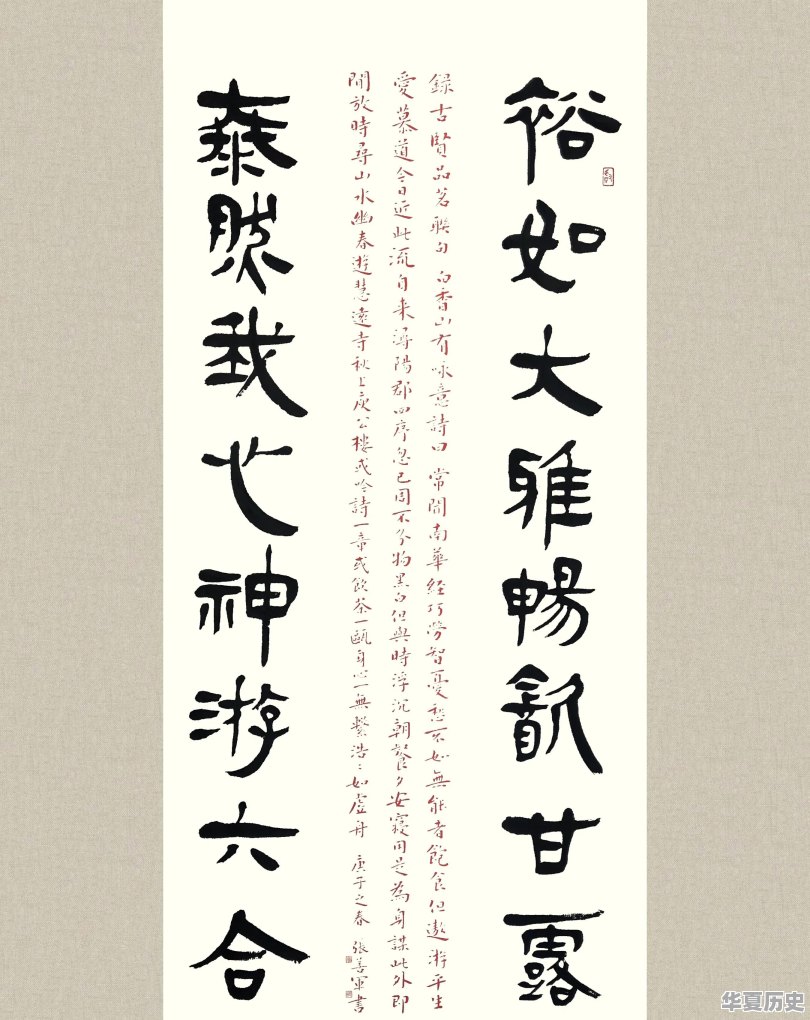 裕如大雅暢飲甘露
錄古賢品茗聯句 白香山有咏意詩曰 常聞南華經巧勞智憂愁不如無能者飽食但遨游平生
愛慕道今日近此流自来潯陽郡四序忽已周不分物黑白但與時浮沉朝餐夕安寢用是為身謀此外即
閒放時尋山水幽春遊慧遠寺秋上庾公樓或吟詩一章或飲茶一甌身心一無繫浩〻如虛舟 庚子之春 張善軍書
泰然我心神游六合
华夏历史